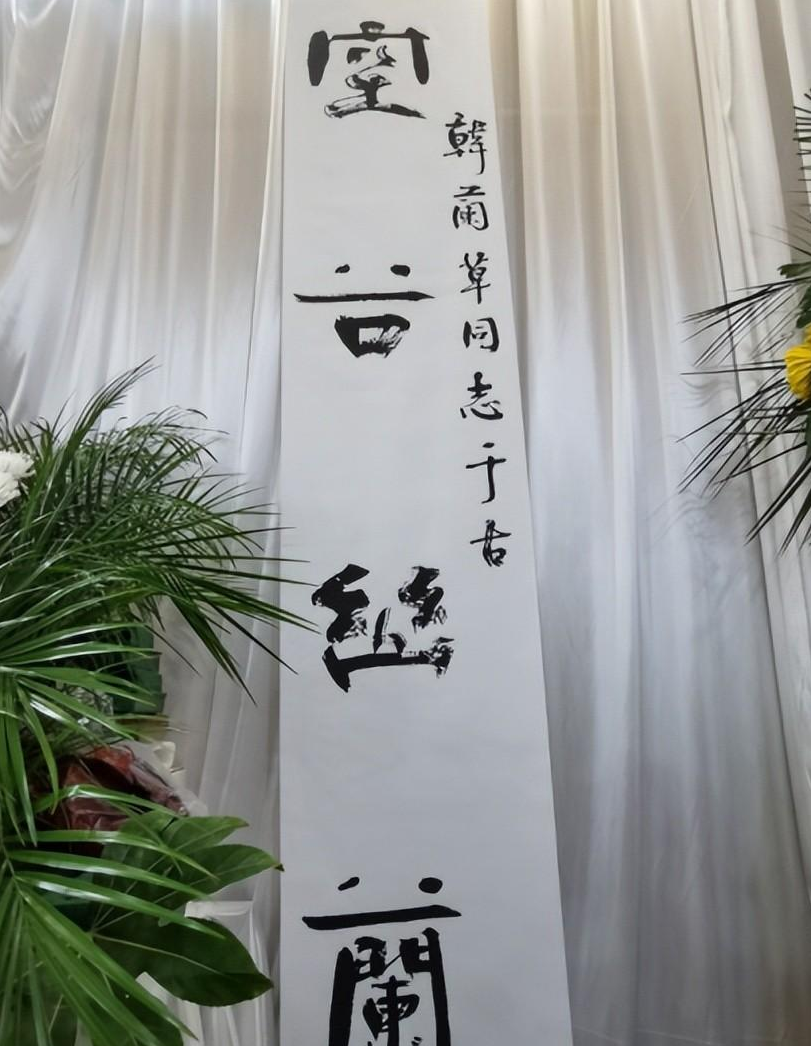 韓蘭草同志千古
空谷幽蘭